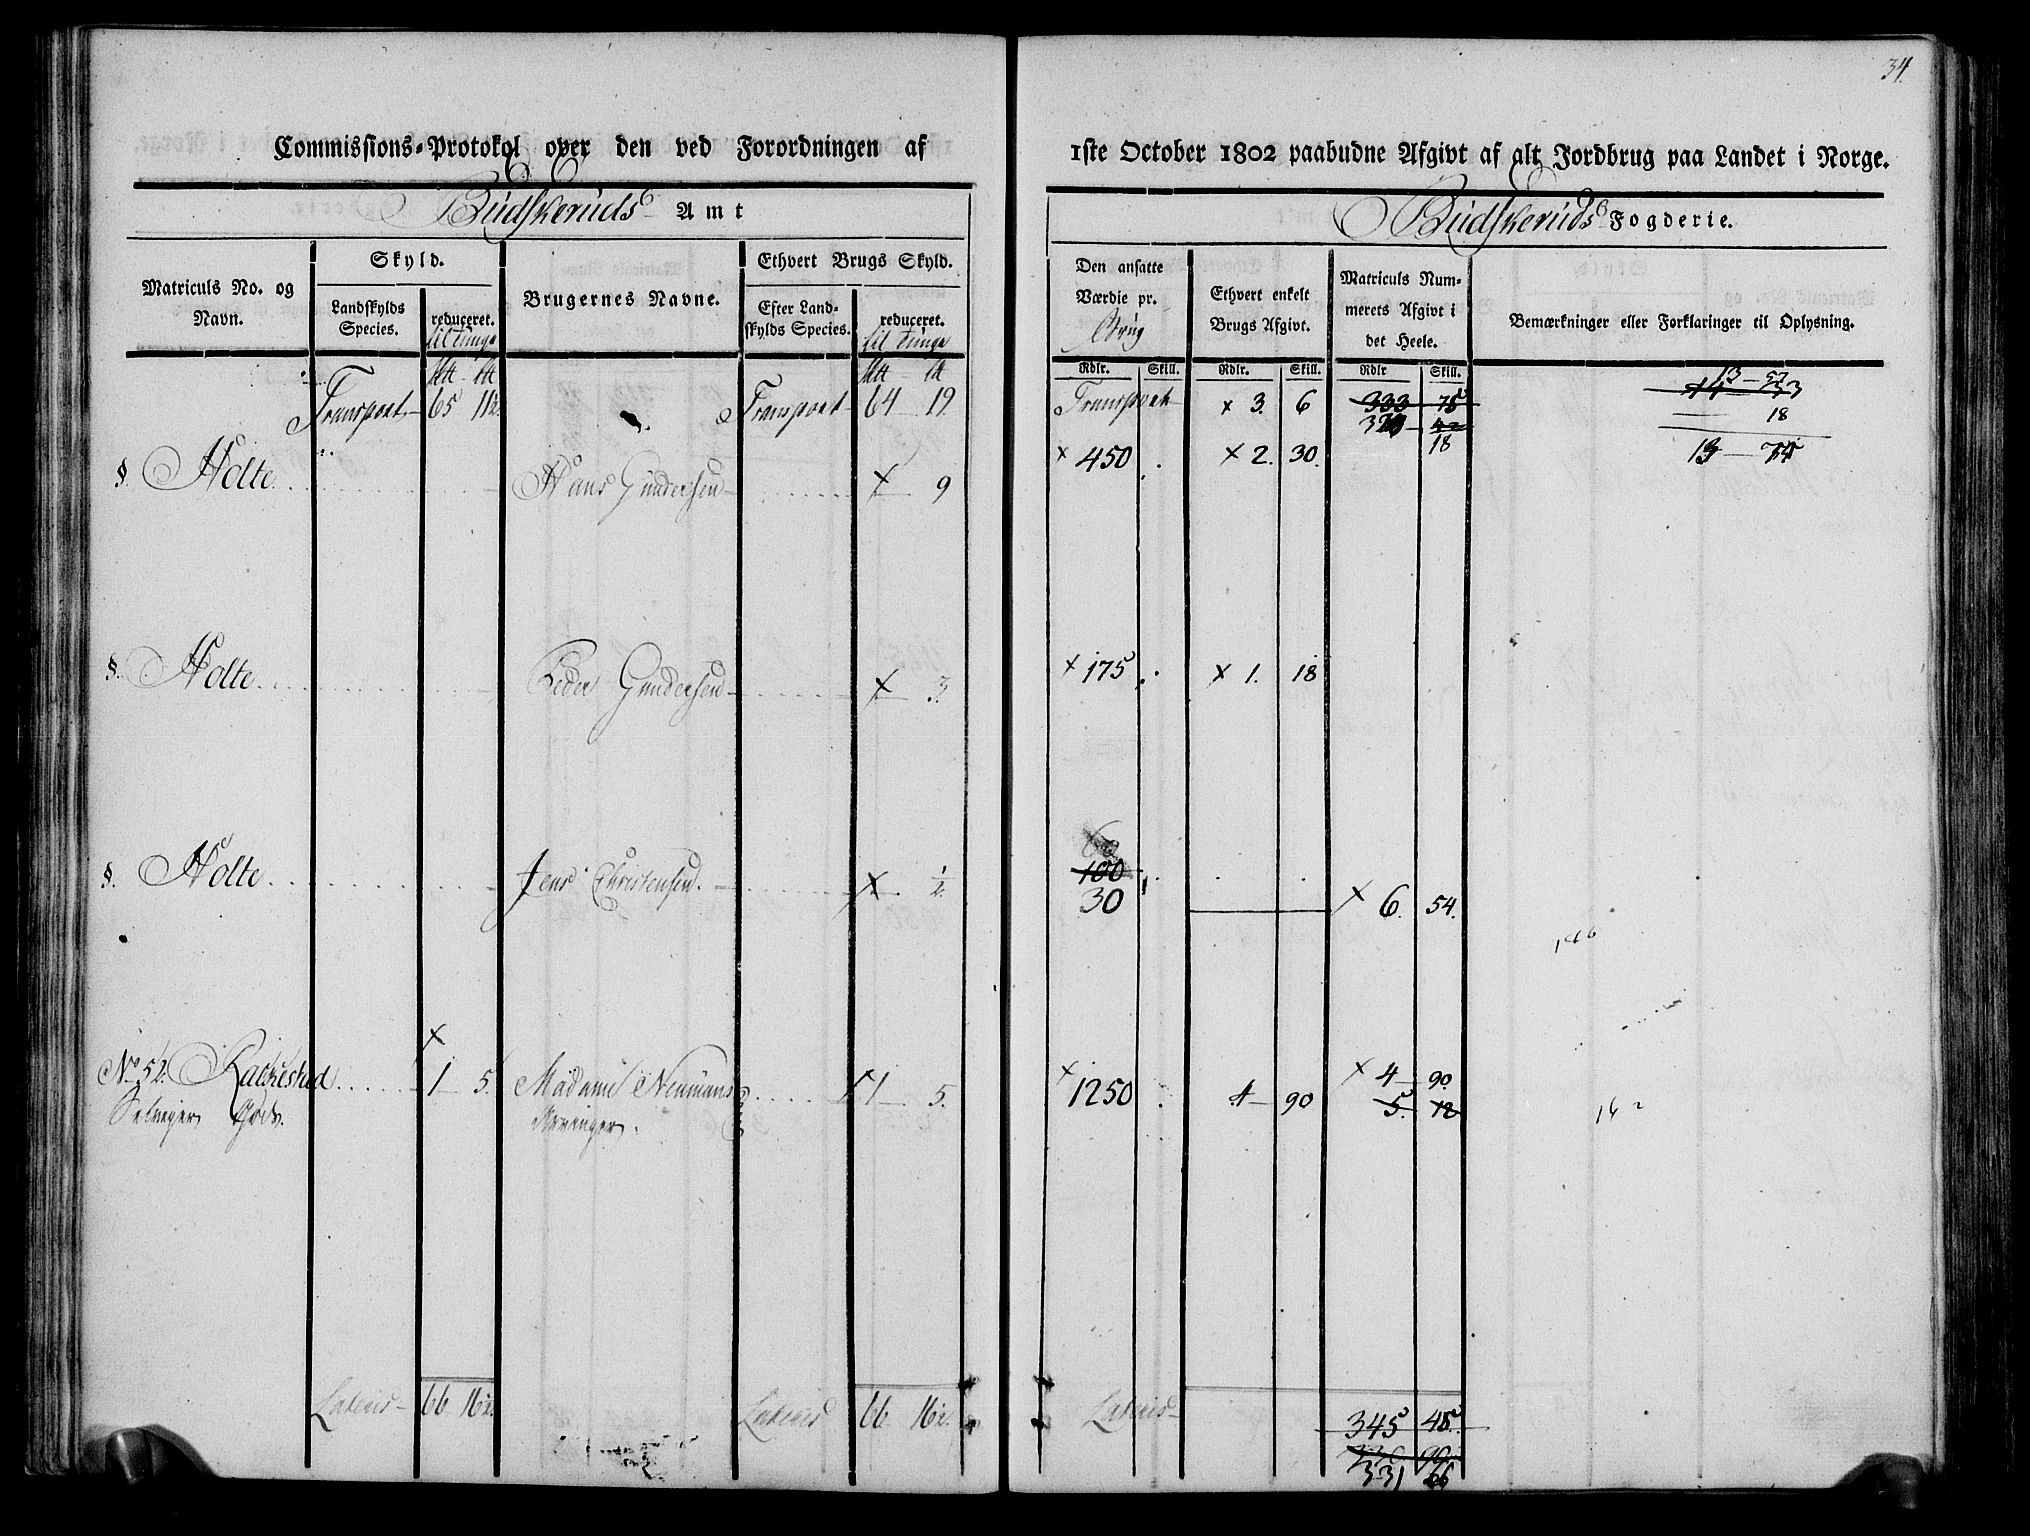 34.
Commissions-Protokol over den ved Forordningen af
1ste October 1802 paabudne Afgivt af alt Jordbrug paa Landet i Norge.
Budskeruds Amt
Budskeruds Fogderie.
Matriculs No. og Navn.
Skyld.
Landskylds Species.
reduceret.
til Tunge
Brugernes Navne.
Ethvert Brugs Skyld.
Efter Landskylds Species.
reduceret.
til Tunge
Den ansatte Værdie pr.
Brug
Ethvert enkelt Brugs Afgivt.
Matriculs Nummerets Afgivt i det Heele.
Bemærkninger eller Forklaringer til Oplysning.
Rdlr. Skill. Rdlr. Skill. Rdlr Skill.
Transport 65 11½ Transport 64 19 Transport x 3. 6 333 75
18
13 — 57
18
§. Holte Hans Gundersen x 9 x 450 . x 2. 30.
§. Holte Peder Gundersen x 3. x 175 . x 1. 18
§. Holte Jens Christensen. x ½ 100
30 x 6. 54.
x
No 52. Rackestad 1 5. Madame Neumans x 1 5. x 1250 . 4 — 90 x 4 — 90.
Selveyer Gods. Arvinger. 5. 12
Lateris 66 16½. Lateris 66 16½. Lateris 345 45.
331 66